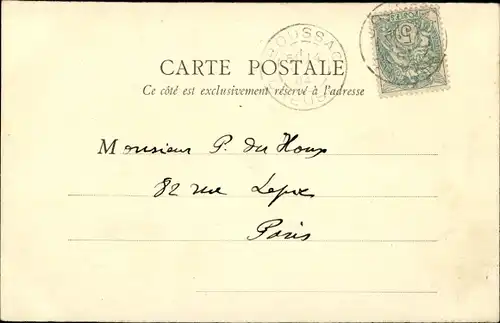 CARTE POSTALE
Ce côté est exclusivement réservé à l'adresse
Monsieur P. du Houx
82 rue
Paris